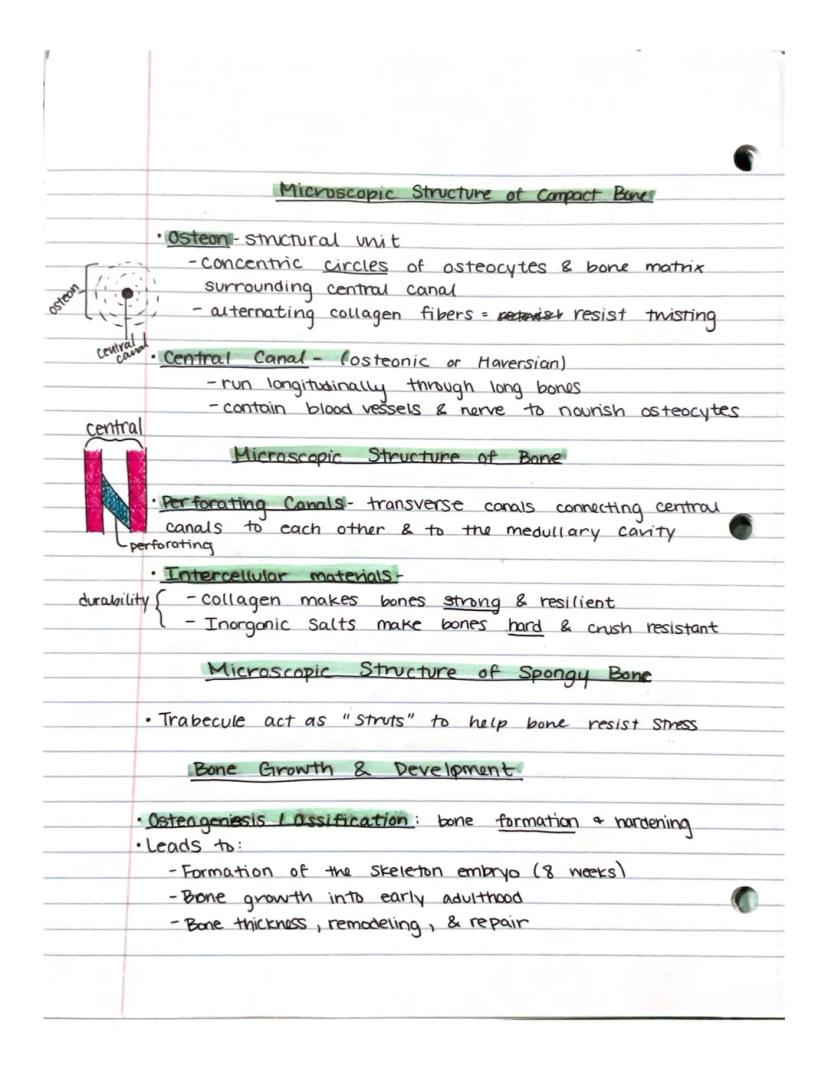 Microscopic Structure of Compact Bone
• Osteon - structural unit
- concentric circles of osteocytes & bone matrix
surrounding central canal
- alternating collagen fibers = resist twisting
osteon
central
canal
• Central Canal - (osteonic or Haversian)
- run longitudinally through long bones
- contain blood vessels & nerve to nourish osteocytes
central
Microscopic Structure of Bone
• Perforating Canals - transverse canals connecting central
canals to each other & to the medullary cavity
perforating
• Intercellular materials -
durability { - collagen makes bones strong & resilient
- Inorganic Salts make bones hard & crush resistant
Microscopic Structure of Spongy Bone
• Trabecule act as "struts" to help bone resist stress
Bone Growth & Develpment
• Osteogeniesis / Ossification: bone formation & hardening
• Leads to:
- Formation of the skeleton embryo (8 weeks)
- Bone growth into early adulthood
- Bone thickness, remodeling, & repair